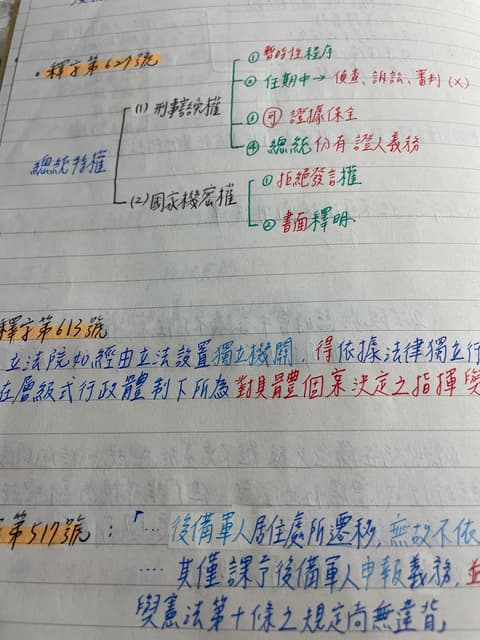 • 釋字第627號
總統特權
(1) 刑事豁免權
① 暫時性程序
② 任期中→ 偵查、訴訟、審判 (×)
③ 可 證據保全
④ 總統仍有證人義務
(2) 國家機密權
① 拒絕發言權
② 書面釋明
釋字第613號
立法院如經由立法設置獨立機關,得依據法律獨立行
在層級式行政體制下所為對具體個案決定之指揮與
第517號:「… 後備軍人居住處所遷移,無故不依
…. 其僅課予後備軍人申報義務,並
與憲法第十條之規定尚無違背